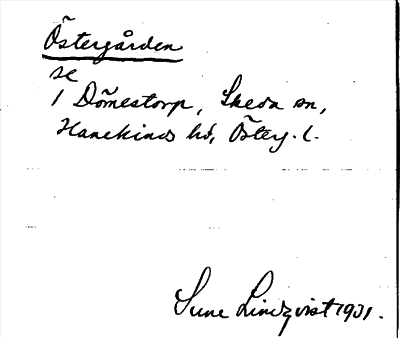 Östergården
se
1 Dömestorp, Skeda sn,
Hanekinds hd, Österg. l.
Sune Lindqvist 1931.